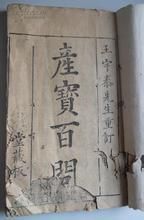 王宇泰先生重訂
產寶百問
堂藏板